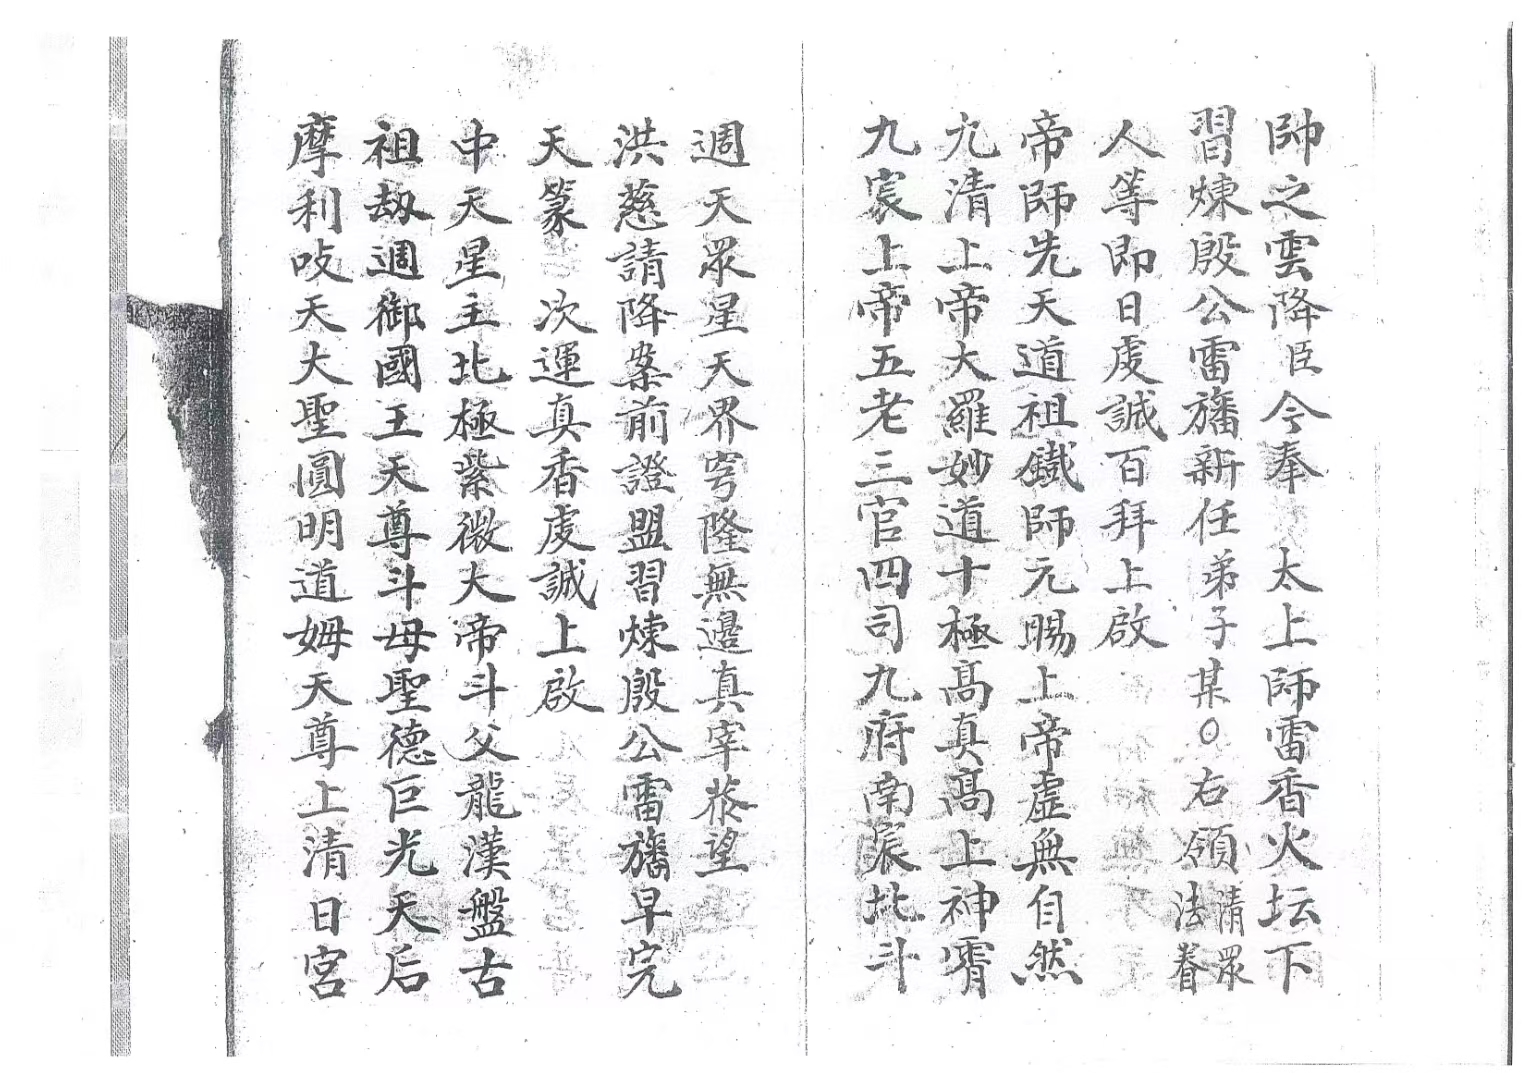 帥之雲降臣今奉　太上師雷香火坛下
習煉殷公雷旛新任弟子某○右領清眾法眷
人等即日虔誠百拜上啟
帝師先天道祖鐵師元賜上帝虛無自然
九清上帝大羅妙道十極高真高上神霄
九宸上帝五老三官四司九府南辰北斗
週天眾星天界穹隆無邊真宰恭望
洪慈請降案前證盟習煉殷公雷旛早完
天篆　次運真香虔誠上啟
中天星主北極紫微大帝斗父龍漢盤古
祖劫週御國王天尊斗母聖德巨光天后
摩利吱天大聖圓明道姆天尊上清日宮